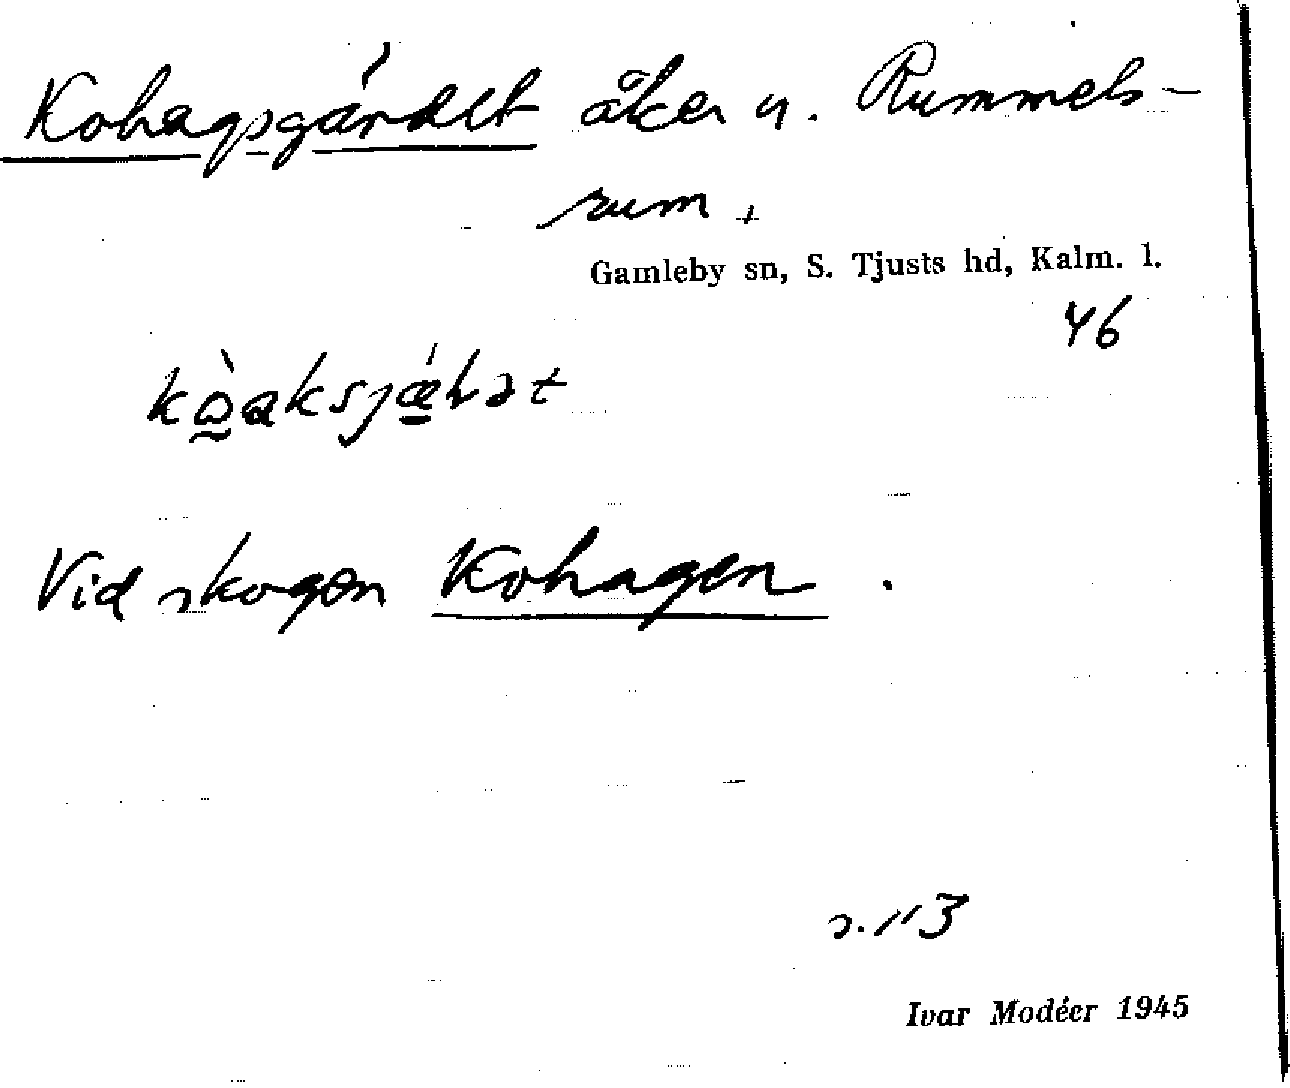 Kohagsgärdet åker u. Rummels-
rum.
Gamleby sn, S. Tjusts hd, Kalm. l.
46
Vid skogen Kohagen.
s. 113
Ivar Modéer 1945